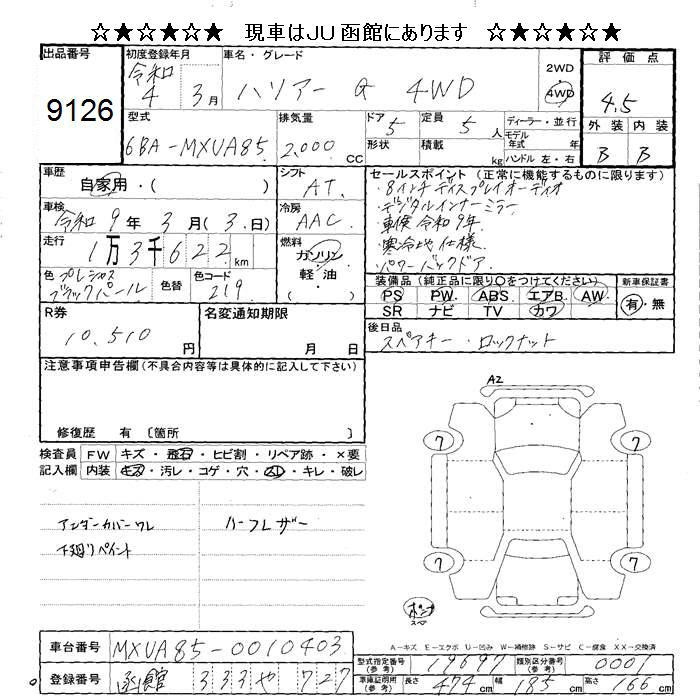 ☆★☆★☆★ 現車はJU函館にあります ☆★☆★☆★
出品番号 初度登録年月 車名・グレード 2WD 評価点
9126 令和 4年 3月 ハリアー G 4WD 4WD 4.5
型式 排気量 ドア 5 定員 5人 ディーラー・並行 外装 内装
6BA-MXUA85 2,000 CC 形状 積載 kg モデル年式 年式 ハンドル 左・右 B B
車歴 シフト セールスポイント(正常に機能するものに限ります)
自家用・( ) AT. ・8インチディスプレイオーディオ
車検 冷房 ・デジタルインナーミラー
令和9年3月(3.日) AAC ・車検令和9年
走行 1万3千622km 燃料 ガソリン ・寒冷地仕様
軽・油 ・パワーバックドア
色 プレシャスブラックパール 色替 色コード 219 ( ) 装備品(純正品に限り○をつけてください) 新車保証書
PS PW ABS エアB AW 有・無
R券 名変通知期限 SR ナビ TV カワ
10,510円 月 日 後日品
スペアキー・ロックナット
注意事項申告欄(不具合内容等は具体的に記入して下さい)
修復歴 有 〔箇所 〕
A2
検査員 FW キズ・飛石・ヒビ割・リペア跡・×要
記入欄 内装 キズ・汚レ・コゲ・穴・スレ・キレ・破レ
7 7
アンダーカバーワレ ハーフレザー
下廻りペイント
7 7
A-キズ E-エクボ U-凹み W-補修跡 S-サビ C-腐食 XX-交換済
車台番号 MXUA85-0010403
型式指定番号(参考) 19697 類別区分番号(参考) 0001
登録番号 函館 333 や 727
車庫証明用(参考) 長さ 474cm 幅 185cm 高さ 166cm